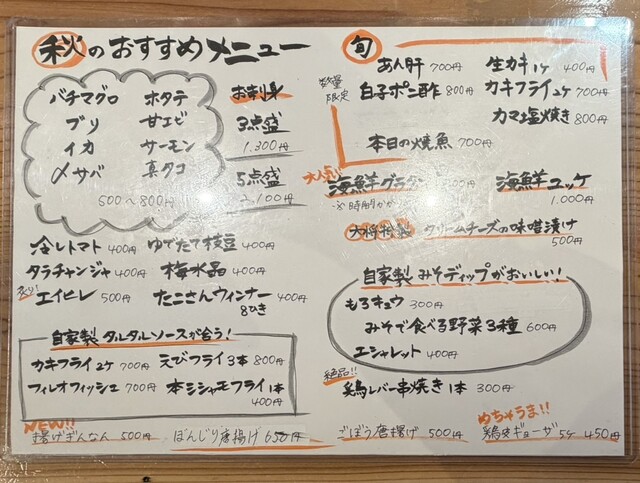 秋のおすすめメニュー
バチマグロ ホタテ
ブリ 甘エビ
イカ サーモン
〆サバ 真タコ
500〜800円
お刺身
3点盛
1,300円
5点盛
2,100円
冷しトマト 400円 ゆでたて枝豆 400円
タラチャンジャ 400円 梅水晶 400円
炙り! エイヒレ 500円 たこさんウィンナー 400円
8ひき
自家製 タルタルソースが合う!
カキフライ2ケ 700円 えびフライ3本 800円
フィレオフィッシュ 700円 本シシャモフライ1本
400円
NEW!!
揚げぎんなん 500円 ぼんじり唐揚げ 650円
旬
数量
限定
あん肝 700円 生カキ1ケ 400円
白子ポン酢 800円 カキフライ2ケ 700円
カマ塩焼き 800円
本日の焼魚 700円
海鮮グラタン 海鮮ユッケ
1,000円
大将特製 クリームチーズの味噌漬け
500円
自家製 みそディップがおいしい!
もろキュウ 300円
みそで食べる野菜3種 600円
エシャレット 400円
絶品!!
鶏レバー串焼き1本 300円
ごぼう唐揚げ 500円
めちゃうま!!
鶏皮ギョーザ5ケ 450円